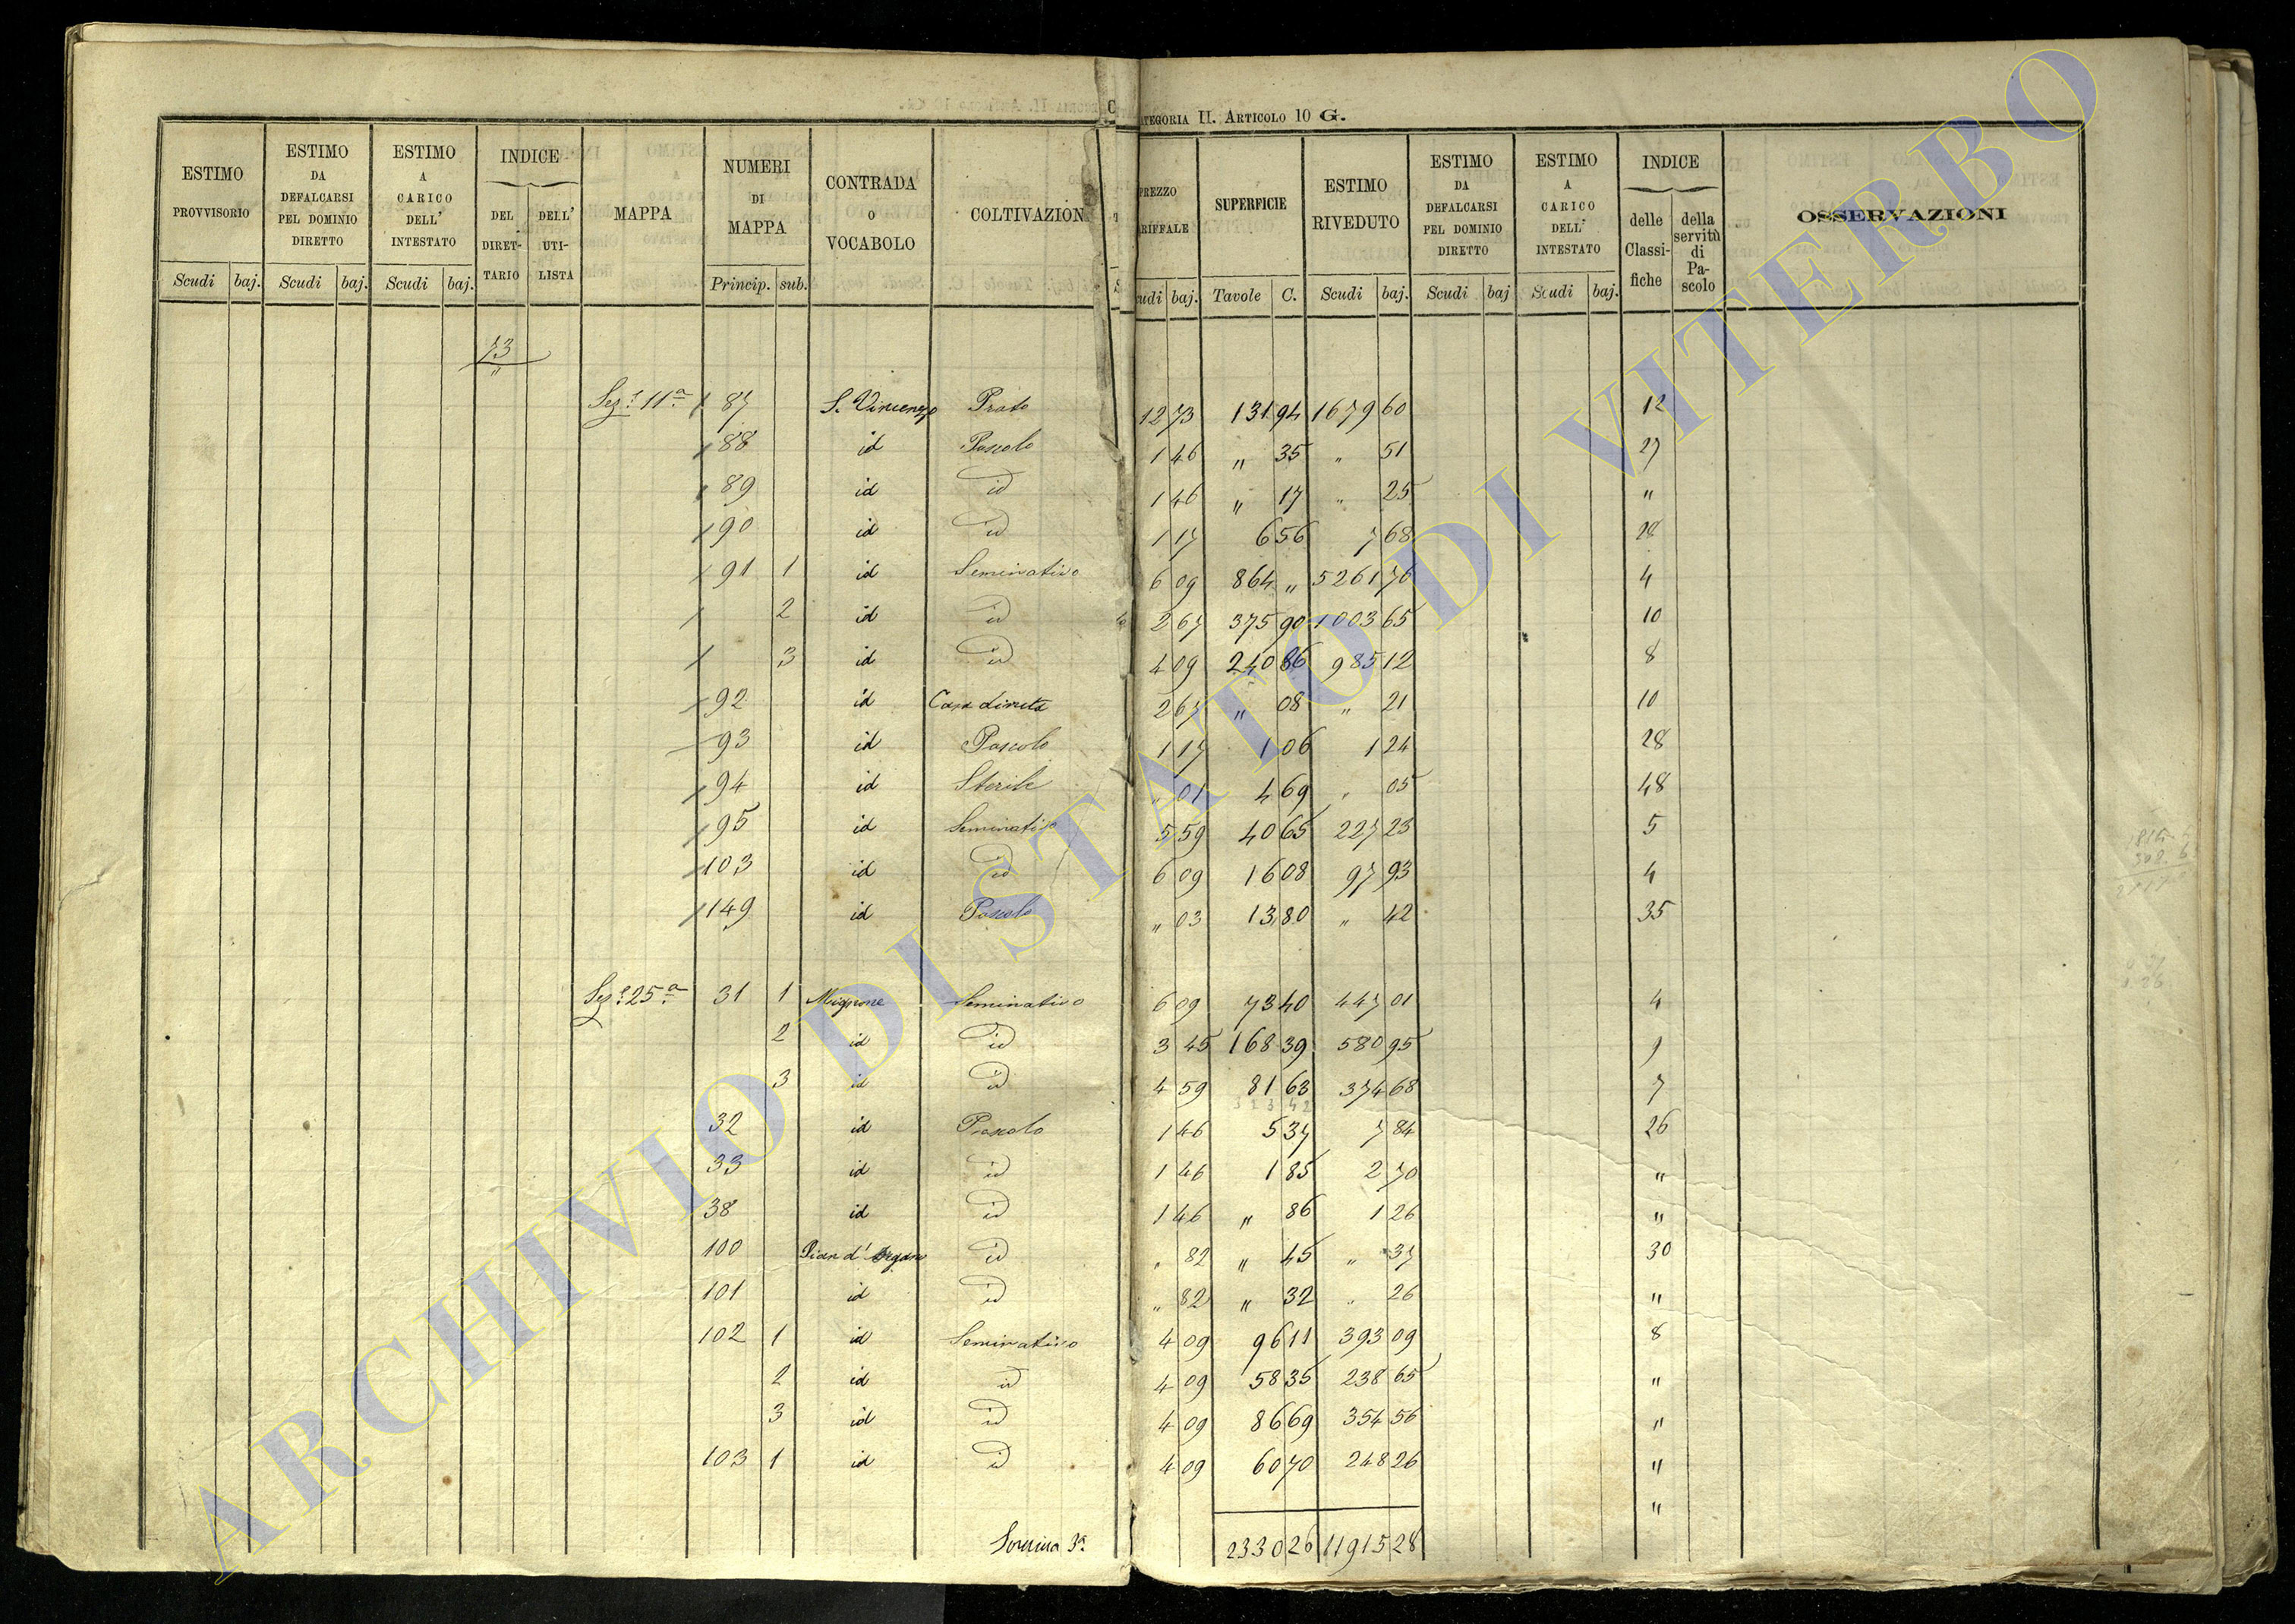 CATEGORIA II. ARTICOLO 10 G.
ESTIMO PROVVISORIO Scudi baj.
ESTIMO DA DEFALCARSI PEL DOMINIO DIRETTO Scudi baj.
ESTIMO A CARICO DELL' INTESTATO Scudi baj.
INDICE DEL DIRET-TARIO DELL' UTI-LISTA
MAPPA
NUMERI DI MAPPA Princip. sub.
CONTRADA O VOCABOLO
COLTIVAZION
PREZZO TARIFFALE Scudi baj.
SUPERFICIE Tavole C.
ESTIMO RIVEDUTO Scudi baj.
ESTIMO DA DEFALCARSI PEL DOMINIO DIRETTO Scudi baj
ESTIMO A CARICO DELL' INTESTATO Scudi baj.
INDICE delle Classi-fiche della servitù di Pa-scolo
OSSERVAZIONI
73
"
Sez.e 11a 87 S. Vincenzo Prato 12 73 131 94 1679 60 12
88 id Pascolo 1 46 " 35 " 51 27
89 id id 1 46 " 17 " 25 "
90 id id 1 17 6 56 7 68 28
91 1 id Seminativo 6 09 864 " 5261 76 4
2 id id 2 67 375 90 1003 65 10
3 id id 4 09 240 86 985 12 8
92 id Casa diruta 2 67 " 08 " 21 10
93 id Pascolo 1 17 1 06 1 24 28
94 id Sterile " 01 4 69 " 05 48
95 id Seminativo 5 59 40 65 227 23 5
103 id id 6 09 16 08 97 93 4
149 id Pascolo " 03 13 80 " 42 35
Sez.e 25a 31 1 Mignone Seminativo 6 09 73 40 447 01 4
2 id id 3 45 168 39 580 95 9
3 id id 4 59 81 63 374 68 7
323 42
32 id Pascolo 1 46 5 37 7 84 26
33 id id 1 46 1 85 2 70 "
38 id id 1 46 " 86 1 26 "
100 Pian d'Organo id " 82 " 45 " 37 30
101 id id " 82 " 32 " 26 "
102 1 id Seminativo 4 09 96 11 393 09 8
2 id id 4 09 58 35 238 65 "
3 id id 4 09 86 69 354 56 "
103 1 id id 4 09 60 70 248 26 "
"
Somma 3a 2330 26 11915 28
ARCHIVIO DI STATO DI VITERBO